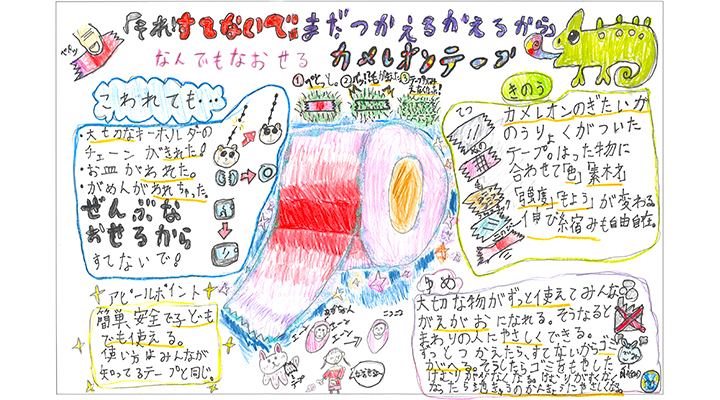 「それ!すてないで」まだつかえるかえるから
なんでもなおせる カメレオンテープ
ペタッ
①ペたっと。
こわれても…
・大切なキーホルダーの
チェーンがきれた!
・お皿がわれた。
・がめんがわれちゃった。
ぜんぶな
おせるから
すてないで!
きのう
カメレオンのぎたいが
のうりょくがついた
テープ。はった物に
合わせて「色」「素材」
「強度」「もよう」が変わる。
伸び縮みも自由自在。
アピールポイント
簡単、安全で子ども
でも使える。
使い方はみんなが
知ってるテープと同じ。
エーン
エーン
ニコニコ
ゆめ
大切な物がずっと使えてみんな
がえがおになれる。そうなると
まわりの人にやさしくできる。
ずっとつかえたら、すてないからゴミ
がへる。そうしたらゴミをもやした